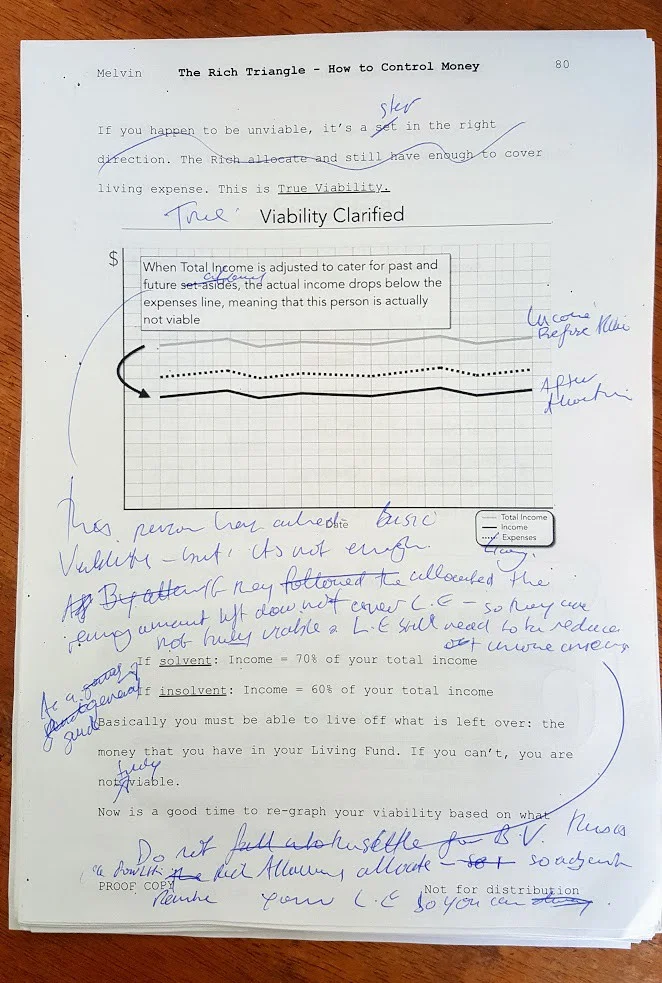 Melvin The Rich Triangle - How to Control Money 80
step
If you happen to be unviable, it's a set in the right
direction. The Rich allocate and still have enough to cover
living expense. This is True Viability.
True Viability Clarified
$
When Total Income is adjusted to cater for past and
future set-asides, the actual income drops below the
expenses line, meaning that this person is actually
not viable
Income
Before
After
This person has basic
Date
Total Income
Income
Expenses
Viability - but its not enough.
By they followed the allocated the
amount left does not cover L.E - so they are
not truly viable & L.E still need to be reduce
or income
If solvent: Income = 70% of your total income
As a
general
guide
If insolvent: Income = 60% of your total income
Basically you must be able to live off what is left over: the
money that you have in your Living Fund. If you can't, you are
truly
not viable.
Now is a good time to re-graph your viability based on what
Do not settle for B.V.
the Rich allocate - so
PROOF COPY Not for distribution
your L.E so you can